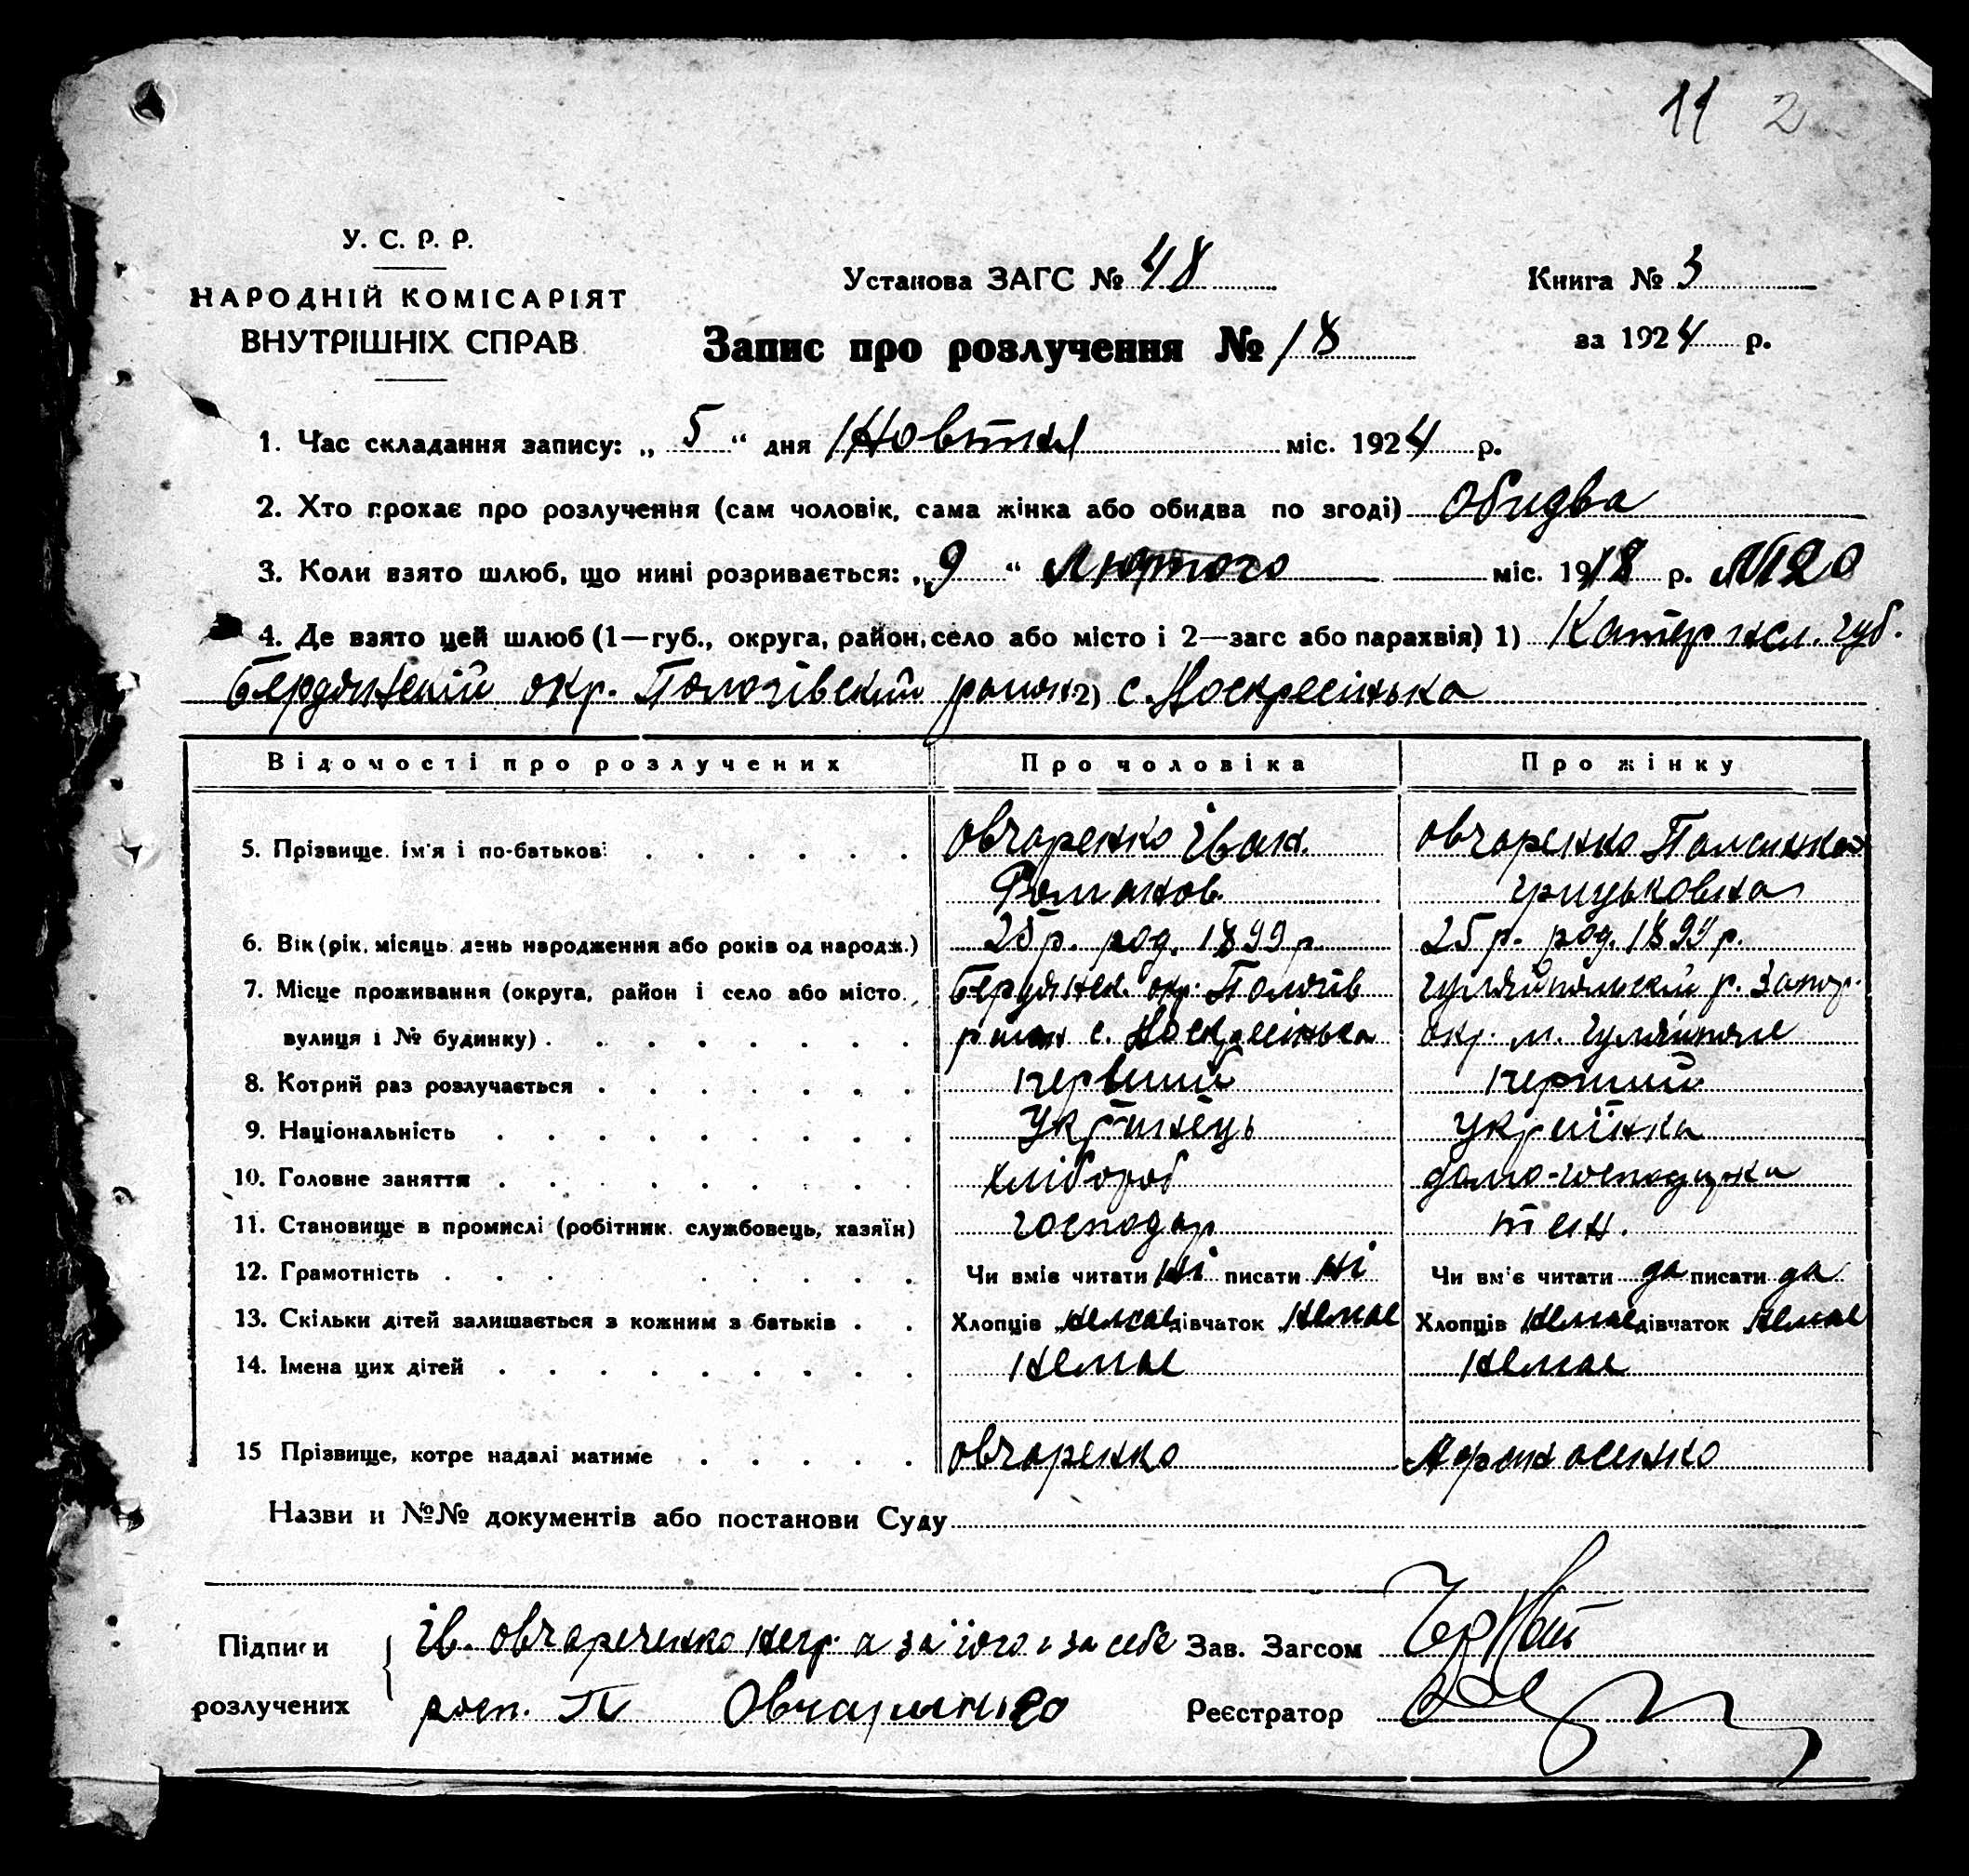 11 2
У. С. Р. Р.
НАРОДНІЙ КОМІСАРІЯТ
ВНУТРІШНІХ СПРАВ
Установа ЗАГС № 48
Книга № 3
Запис про розлучення № 18
за 1924 р.
1. Час складання запису: „ 5 “ дня Новтня міс. 1924 р.
2. Хто прохає про розлучення (сам чоловік, сама жінка або обидва по згоді) обидва
3. Коли взято шлюб, що нині розривається: „ 9 “ Лютого міс. 1918 р. №20
4. Де взято цей шлюб (1—губ., округа, район, село або місто і 2—загс або парахвія) 1) Катерносл. губ.
Бердянській окр. Пологівский район 2) с. Воскресінька
Відомості про розлучених Про чоловіка Про жінку
5. Прізвище, ім'я і по-батькові Овчаренко Іван Овчаренко
Романов. Грицьковна
6. Вік (рік, місяць, день народження або років од народж.) 25 р. род. 1899 р. 25 р. род. 1899 р.
7. Місце проживання (округа, район і село або місто, Бердянск. окр. Пологів Гуляйпольский р. Запор.
вулиця і № будинку) район с. Воскресінька окр. м. Гуляйполе
8. Котрий раз розлучається первший перший
9. Національність Українець Українка
10. Головне заняття хлібороб домо-господарка
11. Становище в промислі (робітник, службовець, хазяїн) господар
12. Грамотність Чи вміє читати ні писати ні Чи вміє читати да писати да
13. Скільки дітей залишається з кожним з батьків Хлопців немає дівчаток немає Хлопців немає дівчаток немає
14. Імена цих дітей немає немає
15 Прізвище, котре надалі матиме Овчаренко Афанасенко
Назви и №№ документів або постанови Суду
Підписи Ів. Овчареченко негр. а за його і за себе Зав. Загсом
розлучених росп. П Овчаренко Реєстратор